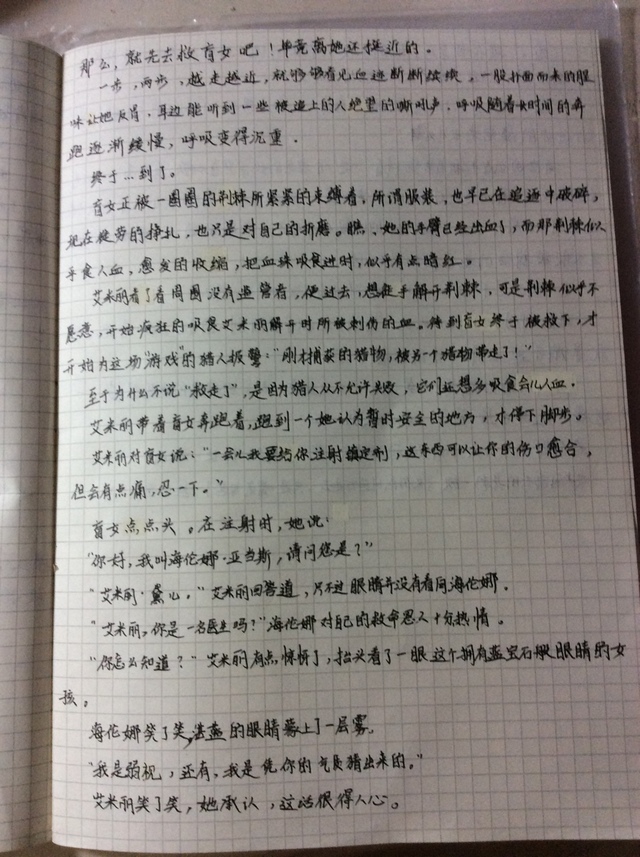 那么，就先去救盲女吧！毕竟离她还挺近的。
一步，两步，越走越近，就能够看见血迹断断续续，一股扑面而来的腥
味让她反胃，耳边能听到一些被追上的人绝望的嘶吼声，呼吸随着长时间的奔
跑逐渐缓慢，呼吸变得沉重。
终于…到了。
盲女正被一圈圈的荆棘所紧紧的束缚着，所谓服装，也早已在追逐中破碎，
现在疲劳的挣扎，也只是对自己的折磨。瞧，她的手臂已经出血了，而那荆棘似
乎食人血，愈发的收缩，把血珠吸食进时，似乎有点暗红。
艾米丽看了看周围没有监管者，便过去，想徒手解开荆棘，可是荆棘似乎不
愿意，开始疯狂的吸食艾米丽解开时所被刺伤的血。待到盲女终于被救下，才
开始为这场“游戏”的猎人报警：“刚才捕获的猎物，被另一个猎物带走了！”
至于为什么不说“救走了”，是因为猎人从不允许失败，它们还想多吸食会儿人血。
艾米丽带着盲女奔跑着，跑到一个她认为暂时安全的地方，才停下脚步。
艾米丽对盲女说：“一会儿我要给你注射镇定剂，这东西可以让你的伤口愈合，
但会有点痛，忍一下。”
盲女点点头。在注射时，她说：
“你好，我叫海伦娜·亚当斯，请问您是？”
“艾米丽·黛儿。”艾米丽回答道，只不过眼睛并没有看向海伦娜。
“艾米丽，你是一名医生吗？”海伦娜对自己的救命恩人十分热情。
“你怎么知道？”艾米丽有点惊讶了，抬头看了一眼这个拥有蓝宝石般眼睛的女
孩。
海伦娜笑了笑，湛蓝的眼睛蒙上了一层雾。
“我是弱视，还有，我是凭你的气质猜出来的。”
艾米丽笑了笑，她承认，这话很得人心。